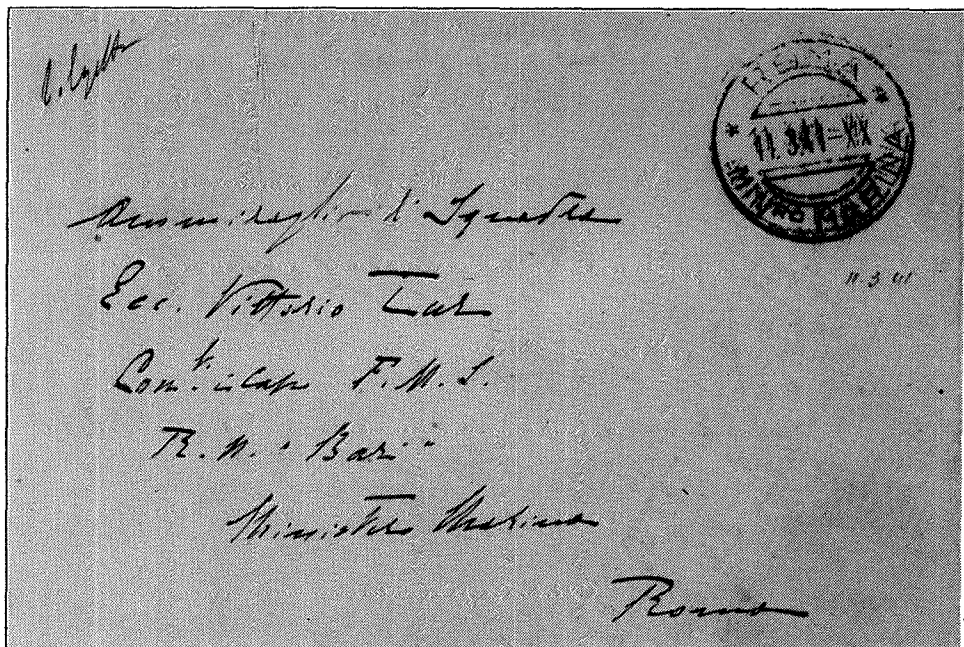 ROMA
11.3.41-XIX
MIN^RO MARINA
11 3 41
Ammiraglio di Squadra
Ecc. Vittorio Tur
Com.te in Capo F.M.S.
R.N. "Bari"
Ministero Marina
Roma